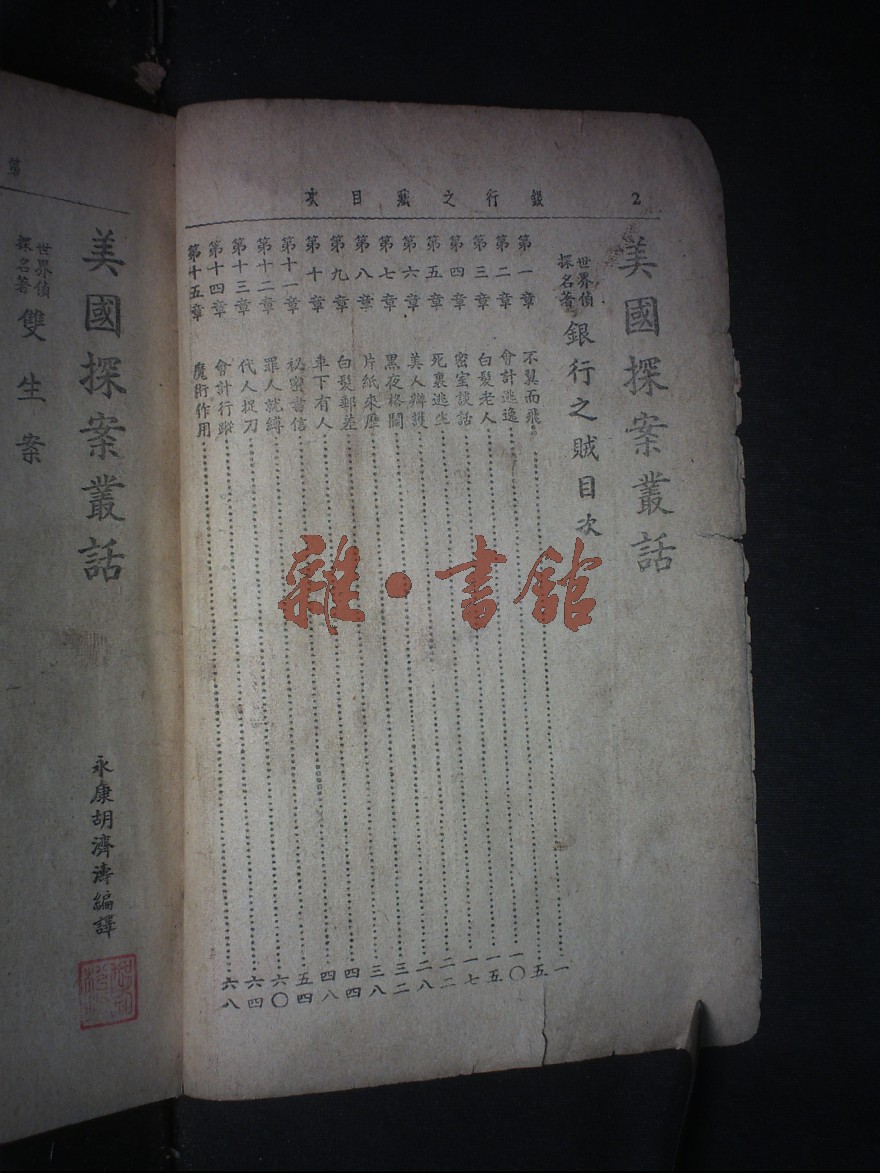 2 銀行之賊目次
美國探案叢話
世界偵
探名著
銀行之賊目次
第一章 不翼而飛 一
第二章 會計逃逸 五
第三章 白髮老人 一〇
第四章 密室談話 一五
第五章 死裏逃生 一七
第六章 美人辯護 二二
第七章 黑夜格鬭 二八
第八章 片紙來歷 三二
第九章 白髮郵差 三八
第十章 車下有人 四四
第十一章 祕密書信 四八
第十二章 罪人就縛 五四
第十三章 代人捉刀 六〇
第十四章 會計行蹤 六四
第十五章 魔術作用 六八
第
美國探案叢話
永康胡濟濤編譯
世界偵
探名著
雙生案
雜·書館